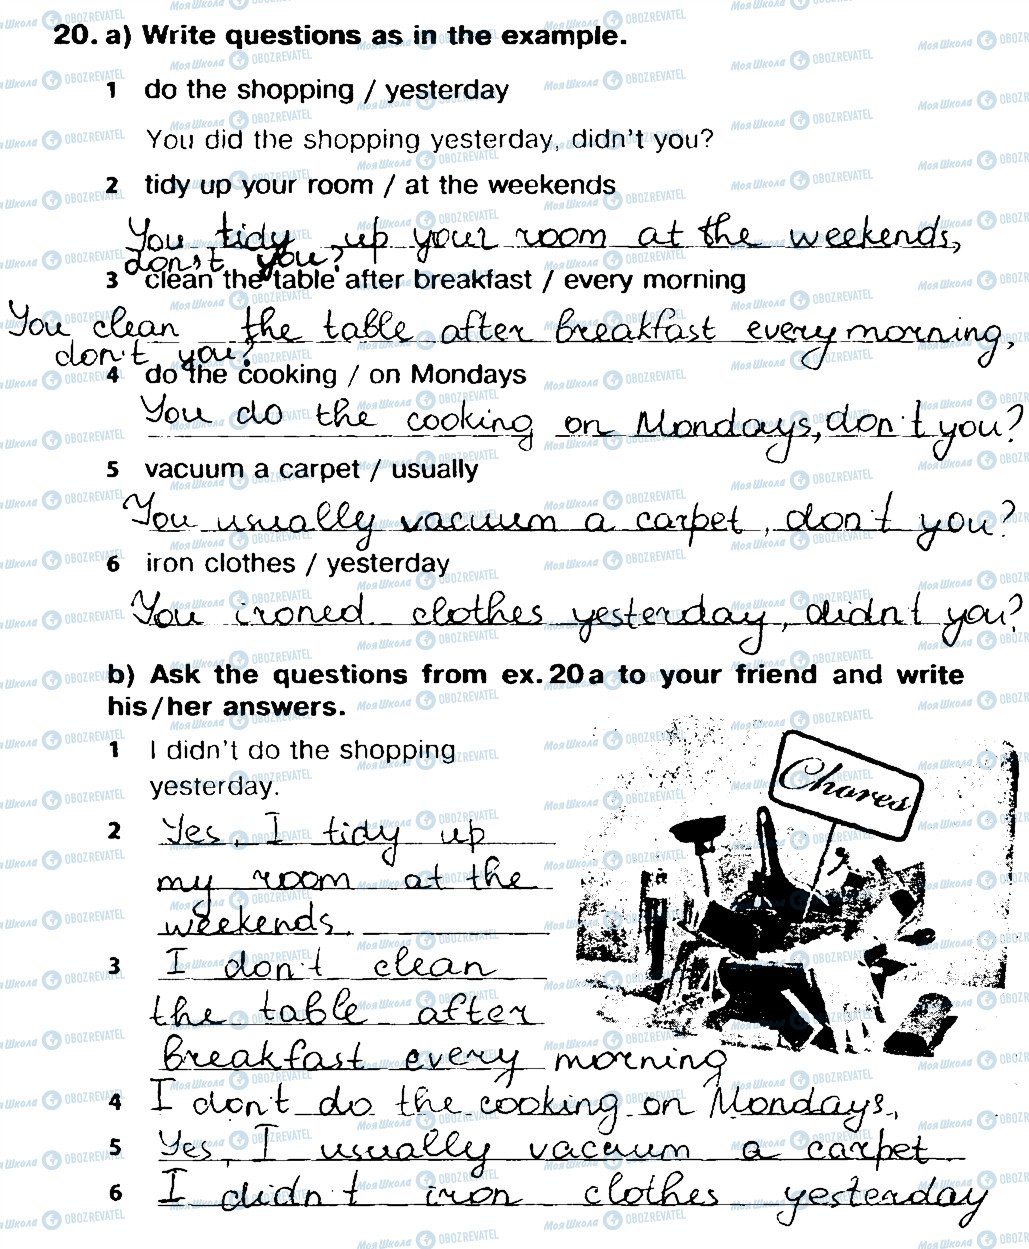 20. a) Write questions as in the example.
1 do the shopping / yesterday
You did the shopping yesterday, didn't you?
2 tidy up your room / at the weekends
You tidy up your room at the weekends,
don't you?
3 clean the table after breakfast / every morning
You clean the table after breakfast every morning,
don't you?
4 do the cooking / on Mondays
You do the cooking on Mondays, don't you?
5 vacuum a carpet / usually
You usually vacuum a carpet, don't you?
6 iron clothes / yesterday
You ironed clothes yesterday, didn't you?
b) Ask the questions from ex. 20 a to your friend and write
his/her answers.
1 I didn't do the shopping
yesterday.
Chores
2 Yes, I tidy up
my room at the
weekends.
3 I don't clean
the table after
breakfast every morning
4 I don't do the cooking on Mondays.
5 Yes, I usually vacuum a carpet
6 I didn't iron clothes yesterday
МояШкола OBOZREVATEL